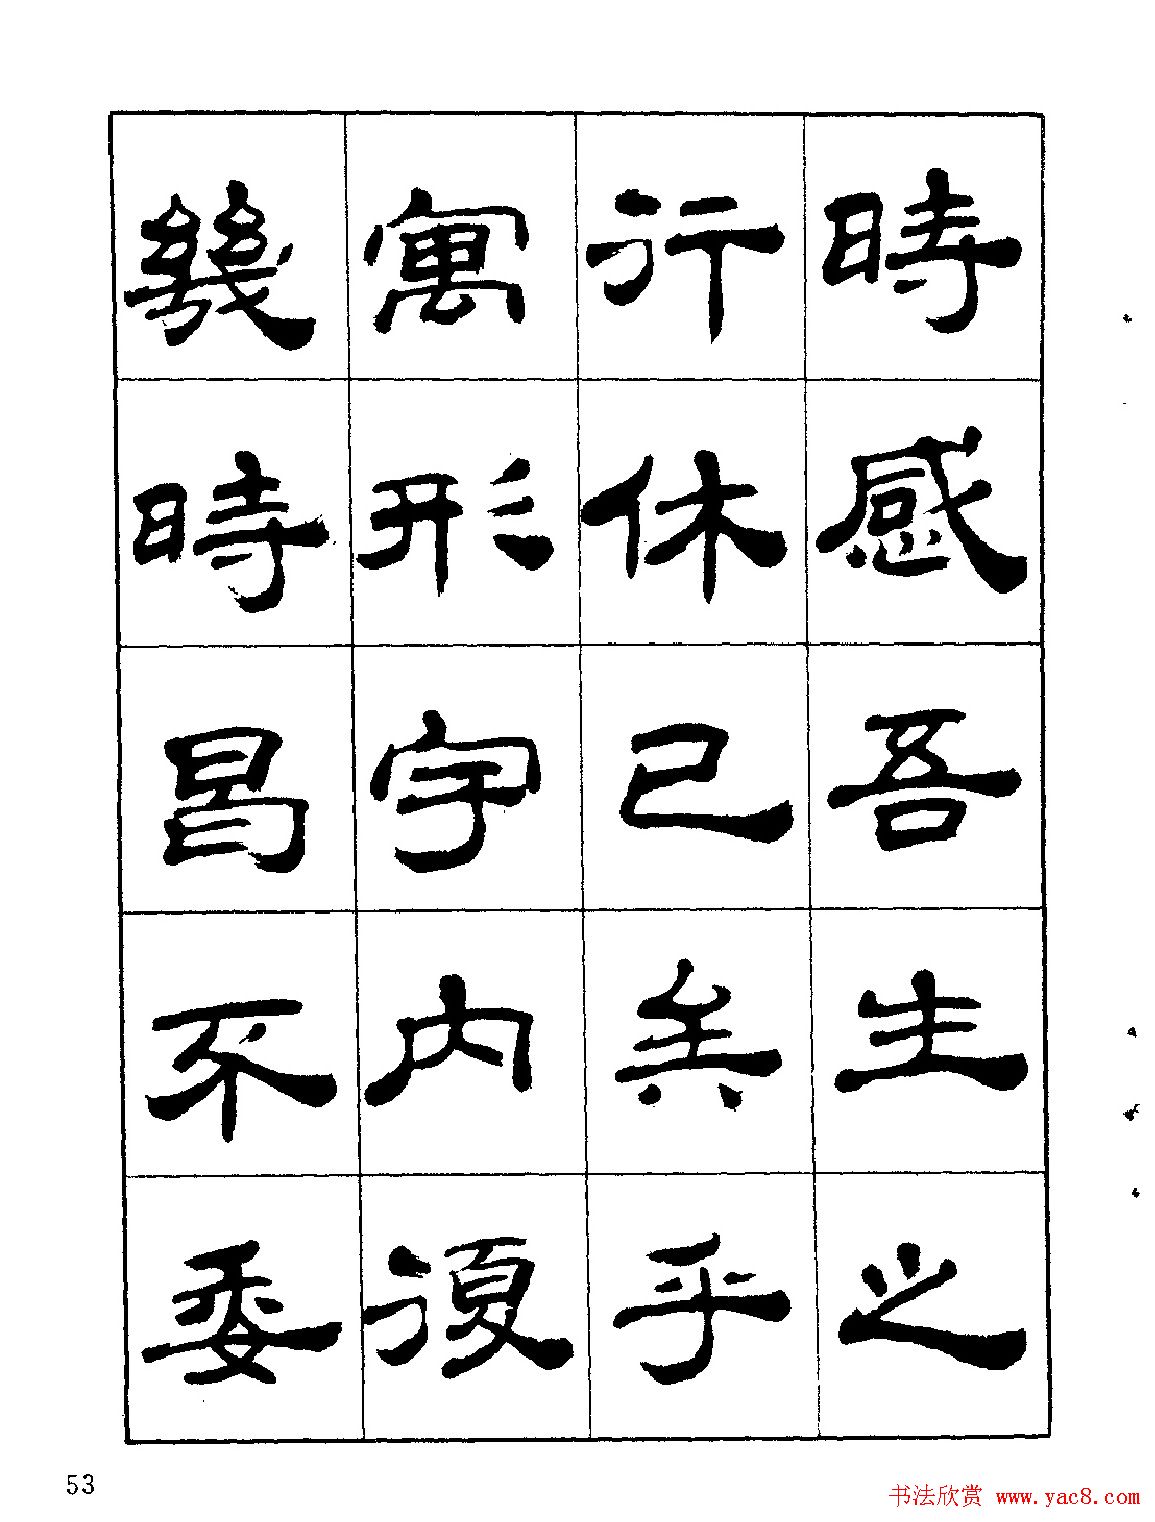 時感吾生之
行休已矣乎
寓形宇内復
幾時曷不委
53
书法欣赏 www.yac8.com